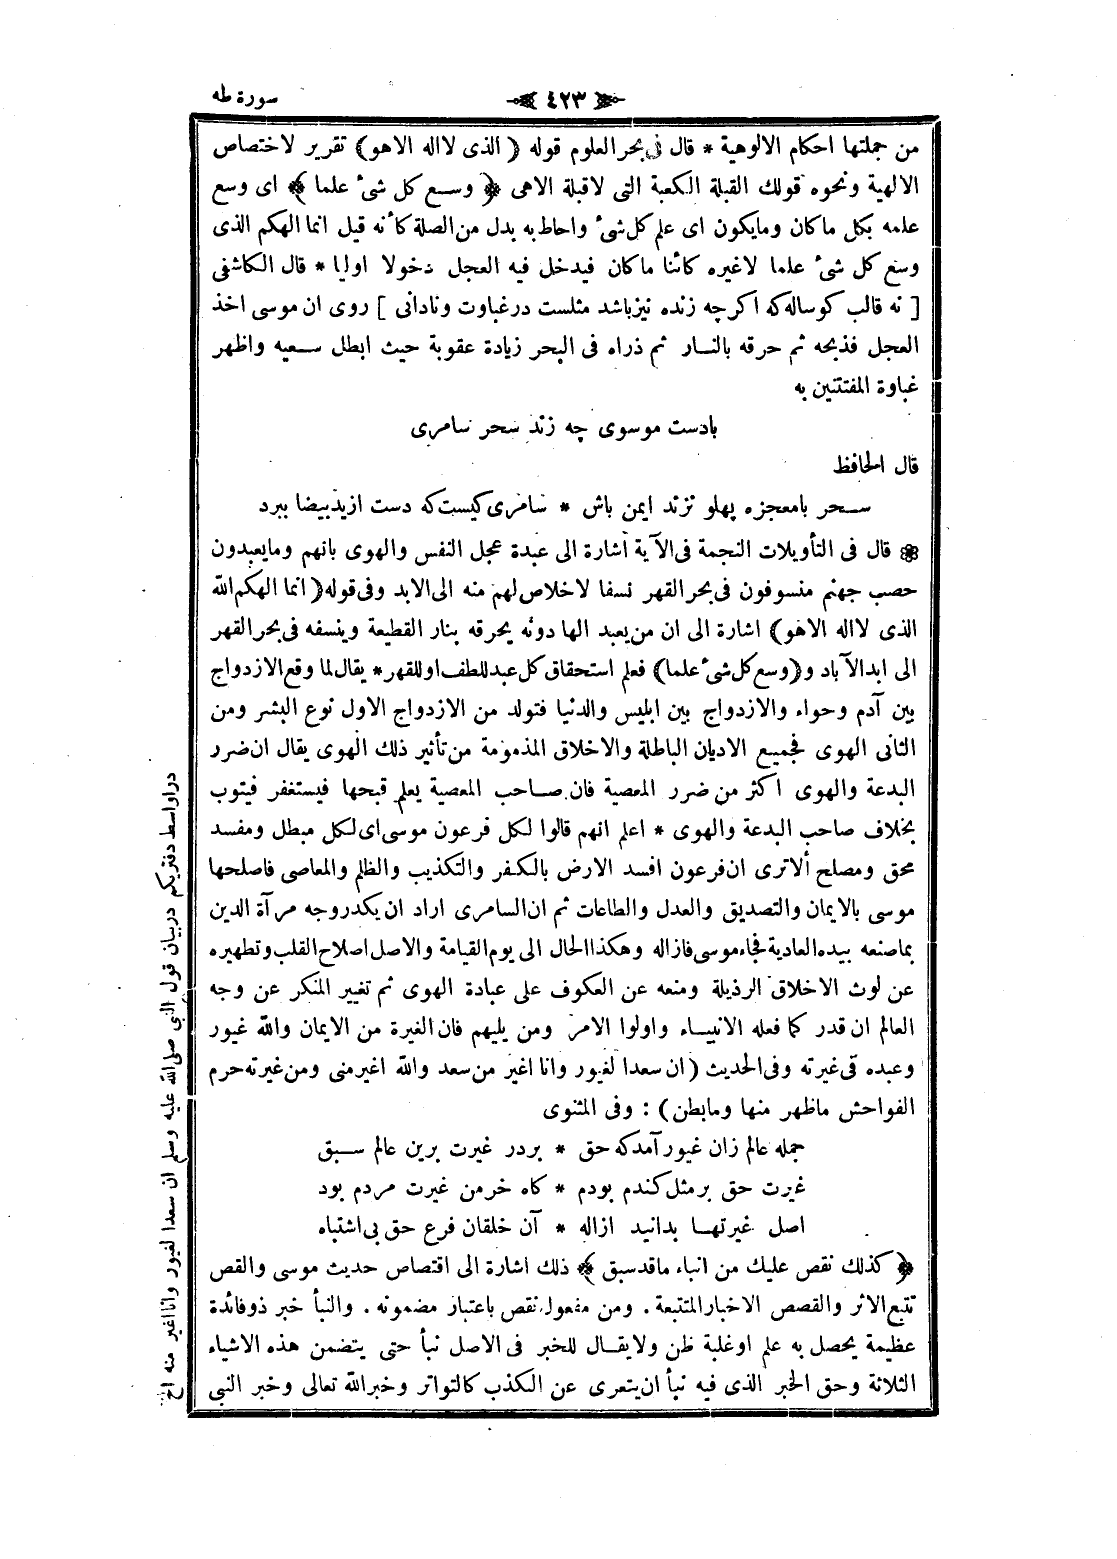 سورة طه
٤٢٣
من جملتها احكام الالوهية * قال فى بحر العلوم قوله ( الذى لااله الاهو ) تقرير لاختصاص
الالهية ونحوه قولك القبلة الكعبة التى لاقبلة الاهى ﴿ وسع كل شئ علما ﴾ اى وسع
علمه بكل ماكان ومايكون اى علم كل شئ واحاط به بدل من الصلة كأنه قيل انما الهكم الذى
وسع كل شئ علما لاغيره كائنا ماكان فيدخل فيه العجل دخولا اوليا * قال الكاشفى
[ نه قالب كوساله كه اكرچه زنده نيز باشد مثلست در غباوت ونادانى ] روى ان موسى اخذ
العجل فذبحه ثم حرقه بالنار ثم ذراه فى البحر زيادة عقوبة حيث ابطل سعيه واظهر
غباوة المفتتين به
بادست موسوى چه زند سحر سامرى
قال الحافظ
سحر بامعجزه پهلو نزند ايمن باش * سامرى كيست كه دست ازيد بيضا ببرد
قال فى التأويلات النجمة فى الآية اشارة الى عبدة عجل النفس والهوى بانهم ومايعبدون
حصب جهنم منسوفون فى بحر القهر نسفا لاخلاص لهم منه الى الابد وفى قوله ( انما الهكم الله
الذى لااله الاهو ) اشارة الى ان من يعبد الها دونه يحرقه بنار القطيعة وينسفه فى بحر القهر
الى ابد الآباد و ( وسع كل شئ علما ) فعلم استحقاق كل عبد للطف او للقهر * يقال لما وقع الازدواج
بين آدم وحواء والازدواج بين ابليس والدنيا فتولد من الازدواج الاول نوع البشر ومن
الثانى الهوى فجميع الاديان الباطلة والاخلاق المذمومة من تأثير ذلك الهوى يقال ان ضرر
البدعة والهوى اكثر من ضرر المعصية فان صاحب المعصية يعلم قبحها فيستغفر فيتوب
بخلاف صاحب البدعة والهوى * اعلم انهم قالوا لكل فرعون موسى اى لكل مبطل ومفسد
محق ومصلح ألاترى ان فرعون افسد الارض بالكفر والتكذيب والظلم والمعاصى فاصلحها
موسى بالايمان والتصديق والعدل والطاعات ثم ان السامرى اراد ان يكدر وجه مرآة الدين
بماصنعه بيده العادية فجاء موسى فازاله وهكذا الحال الى يوم القيامة والاصل اصلاح القلب وتطهيره
عن لوث الاخلاق الرذيلة ومنعه عن العكوف على عبادة الهوى ثم تغيير المنكر عن وجه
العالم ان قدر كما فعله الانبياء واولوا الامر ومن يليهم فان الغيرة من الايمان والله غيور
وعبده فى غيرته وفى الحديث ( ان سعدا لغيور وانا اغير من سعد والله اغير منى ومن غيرته حرم
الفواحش ماظهر منها ومابطن ) : وفى المثنوى
جمله عالم زان غيور آمد كه حق * بردر غيرت برين عالم سبق
غيرت حق بر مثل كندم بودم * كاه خرمن غيرت مردم بود
اصل غيرتها بدانيد ازاله * آن خلقان فرع حق بى اشتباه
﴿ كذلك نقص عليك من انباء ماقدسبق ﴾ ذلك اشارة الى اقتصاص حديث موسى والقص
تتبع الاثر والقصص الاخبار المتتبعة . ومن مفعول نقص باعتبار مضمونه . والنبأ خبر ذوفائدة
عظيمة يحصل به علم اوغلبة ظن ولايقال للخبر فى الاصل نبأ حتى يتضمن هذه الاشياء
الثلاثة وحق الخبر الذى فيه نبأ ان يتعرى عن الكذب كالتواتر وخبر الله تعالى وخبر النبى
در اواسط دفتر يكم در بيان قول النبى صلى الله عليه وسلم ان سعدا لغيور وانا اغير منه الخ